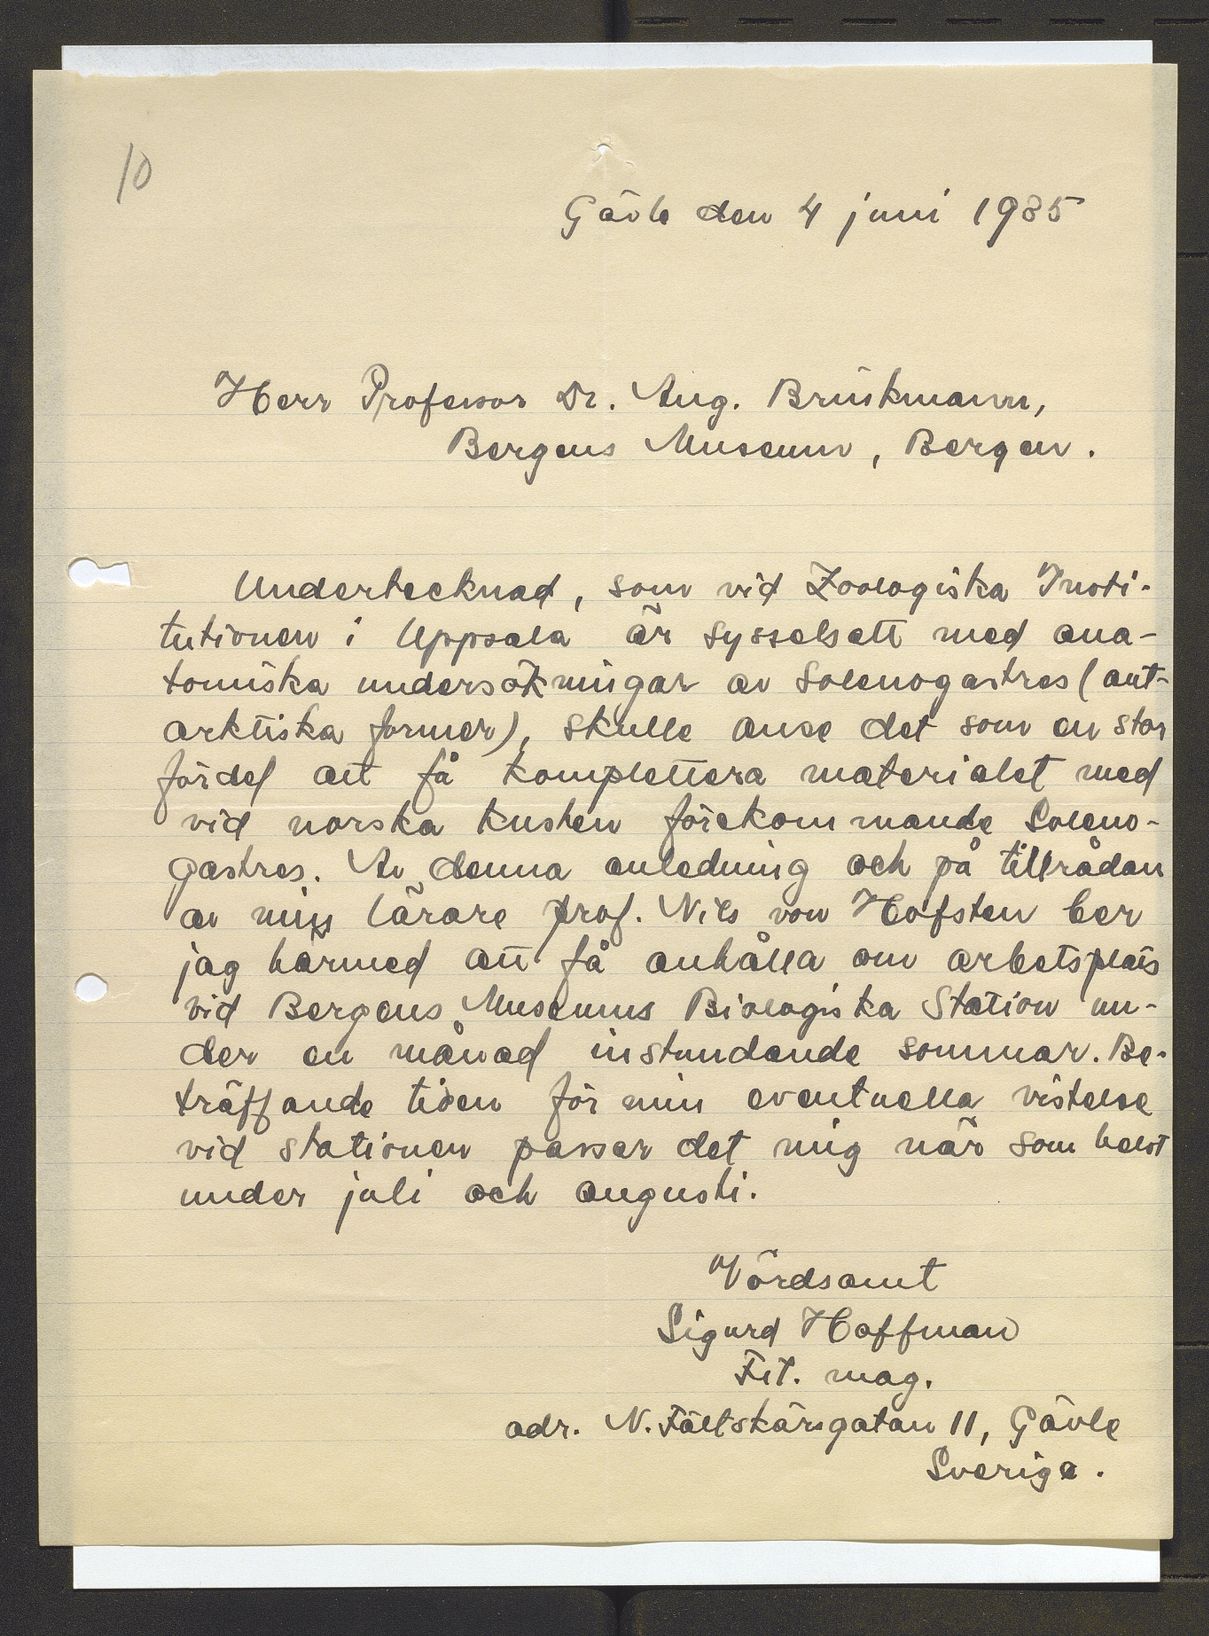 10
Gävle den 4 juni 1935
Herr Professor Dr. Aug. Brinkmann,
Bergens Museum, Bergen.
Undertecknad, som vid Zoologiska Insti-
tutionen i Uppsala är sysselsatt med ana-
tomiska undersökningar av Solenogastres (ant-
arktiska former), skulle anse det som en stor
fördel att få komplettera materialet med
vid norska kusten förekommande Soleno-
gastres. Av denna anledning och på tillrådan
av min lärare prof. Nils von Hofsten ber
jag härmed att få anhålla om arbetsplats
vid Bergens Museums Biologiska Station un-
der en månad instundande sommar. Be-
träffande tiden för min eventuella vistelse
vid stationen passar det mig när som helst
under juli och augusti.
Vördsamt
Sigurd Hoffman
Fil. mag.
adr. N. Fältskärsgatan 11, Gävle
Sverige.